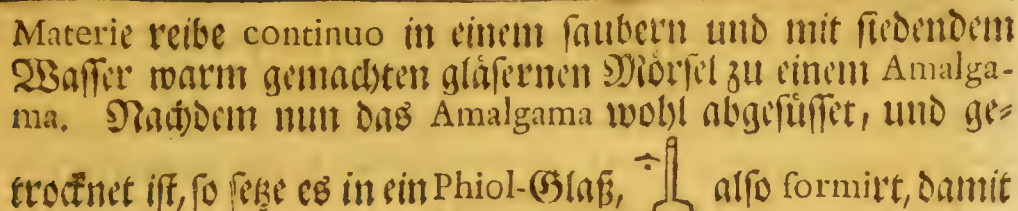 Materie reibe continuo in einem ſaubern und mit ſiedendem
Waſſer warm gemachten gläſernen Mörſel zu einem Amalga-
ma. Nachdem nun das Amalgama wohl abgeſüſſet, und ge-
trocknet iſt, ſo ſetze es in ein Phiol-Glaß, alſo formirt, damit